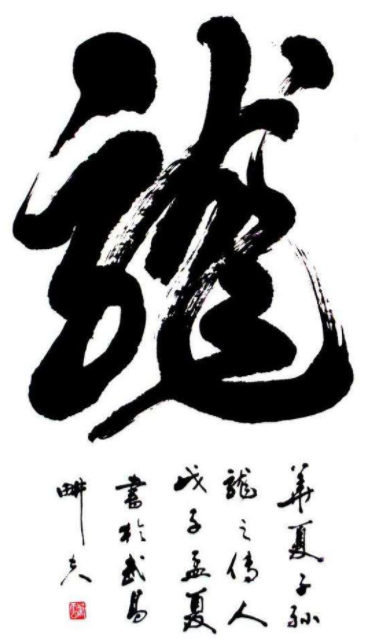 龍
華夏子孫
龍之傳人
戊子孟夏
書於武昌